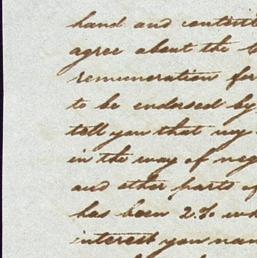 hand and
agree about the
remuneration for
to be endorsed by
tell you that my
in the way of neg
and other parts of
has been 2% wh
interest you nam